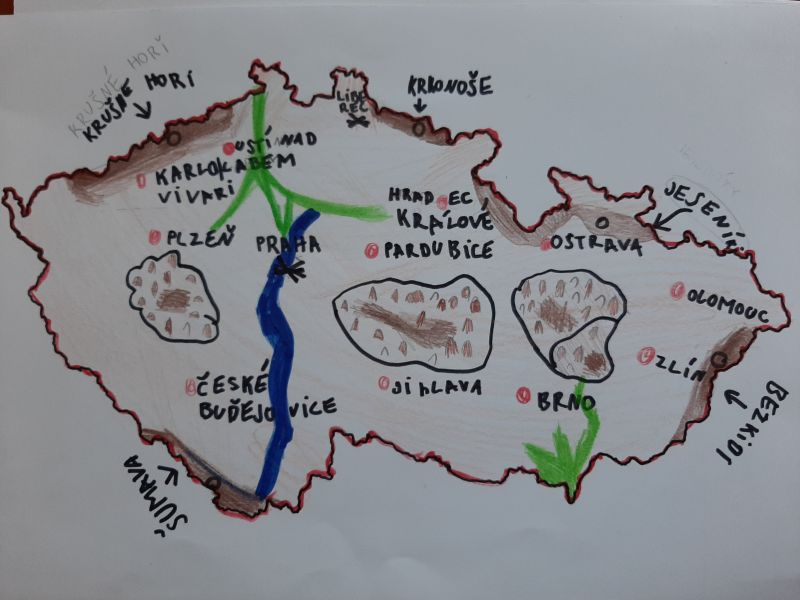 KRUŠNÉ HORI
KRUŠNE HORI
KRKONOŠE
LIBE
REC
ÚSTÍ NAD
LABEM
KARLO
VIVARI
HRADEC
KRÁLOVÉ
JESENÍKI
PLZEŇ
PRAHA
PARDUBICE
OSTRAVA
OLOMOUC
ZLÍN
ČESKÉ
BUĎEJOVICE
JIHLAVA
BRNO
BEZKIDI
ŠUMAVA